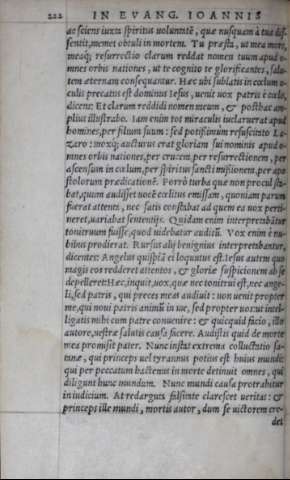 222 IN EVANG. IOANNIS
ac sciens iuxta spiritus uoluntatē, quæ nusquam à tua dis-
sentit, memet obtuli in mortem. Tu præsta, ut mea mors,
meaq; resurrectio clarum reddat nomen tuum apud o-
mnes orbis nationes, ut te cognito te glorificantes, salu-
tem æternam consequantur. Hæc ubi sublatis in cœlum o-
culis precatus est dominus Iesus, uenit uox patris è cœlo,
dicens: Et clarum reddidi nomen meum, & posthac am-
plius illustrabo. Iam enim tot miraculis inclaruerat apud
homines, per filium suum: sed potissimum resuscitato La-
zaro: moxq; aucturus erat gloriam sui nominis apud o-
mnes orbis nationes, per crucem, per resurrectionem, per
ascensum in cœlum, per spiritus sancti missionem, per apo
stolorum prædicationē. Porrò turba quæ non procul sta-
bat, quum audisset uocē cœlitus emissam, quoniam parum
fuerat attentis, nec satis constabat ad quem ea uox perti-
neret, uariabat sententijs. Quidam enim interpretabātur
tonitruum fuisse, quod uidebatur auditū. Vox enim è nu-
bibus prodierat. Rursus alij benignius interpretabantur,
dicentes: Angelus quispiā ei loquutus est. Iesus autem quo
magis eos redderet attentos, & gloriæ suspicionem ab se
depelleret: Hæc, inquit, uox, quæ nec tonitrui est, nec ange-
li, sed patris, qui preces meas audiuit: non uenit propter
me, qui noui patris animū in me, sed propter uos: ut intel-
ligatis mihi cum patre conuenire: & quicquid facio, illo
autore, uestræ salutis causa facere. Audistis quid de morte
mea promisit pater. Nunc instat extrema colluctatio sa-
tanæ, qui princeps uel tyrannus potius est huius mundi:
qui per peccatum hactenus in morte detinuit omnes, qui
diligunt hunc mundum. Nunc mundi causa protrahitur
in iudicium. At redarguta falsitate clarescet ueritas: &
princeps ille mundi, mortis autor, dum se uictorem cre-
det